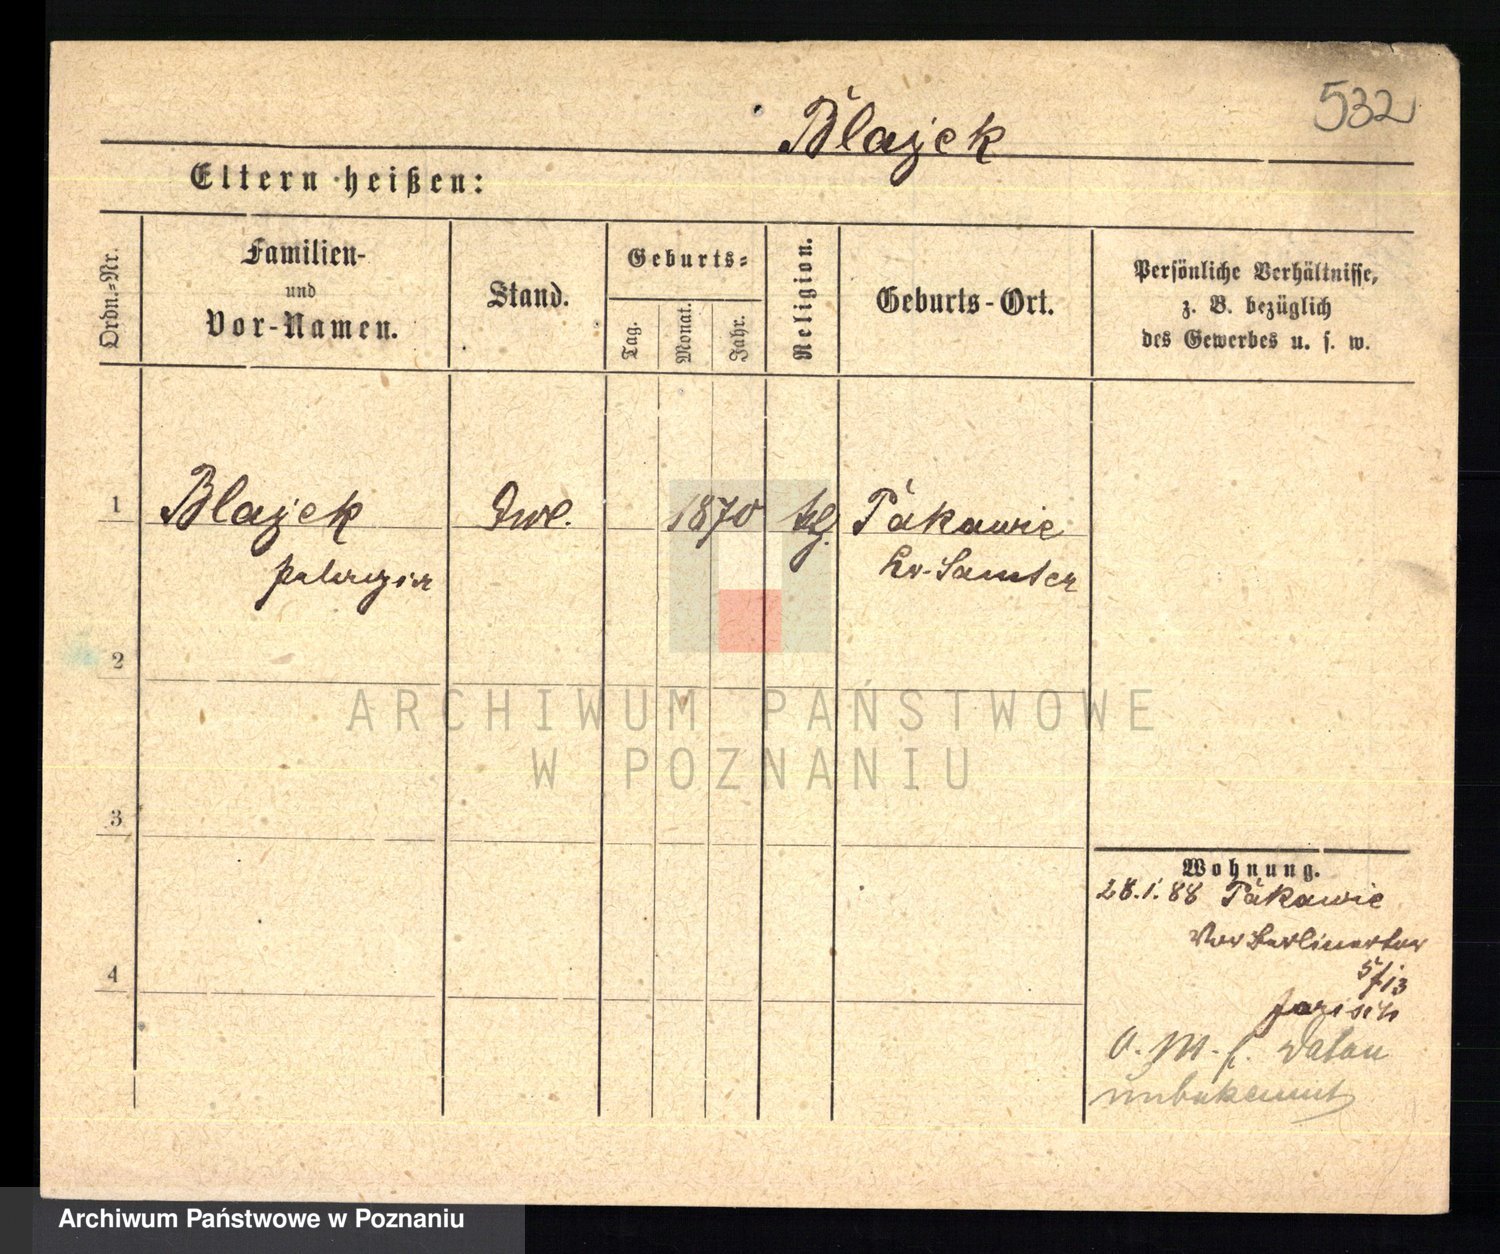 532
Blazek
Eltern heißen:
Ordn.-Nr.
Familien-
und
Vor-Namen.
Stand.
Geburts-
Tag.
Monat.
Jahr.
Religion.
Geburts-Ort.
Persönliche Verhältnisse,
z. B. bezüglich
des Gewerbes u. s. w.
1 Blazek 1870 Pákawie
Kr. Samter
2
3
4
Wohnung.
28.1.88 Pákawie
Vor Berlinertor
5/13
O. M. f. Datau
unbekannt
ARCHIWUM PAŃSTWOWE
W POZNANIU
Archiwum Państwowe w Poznaniu